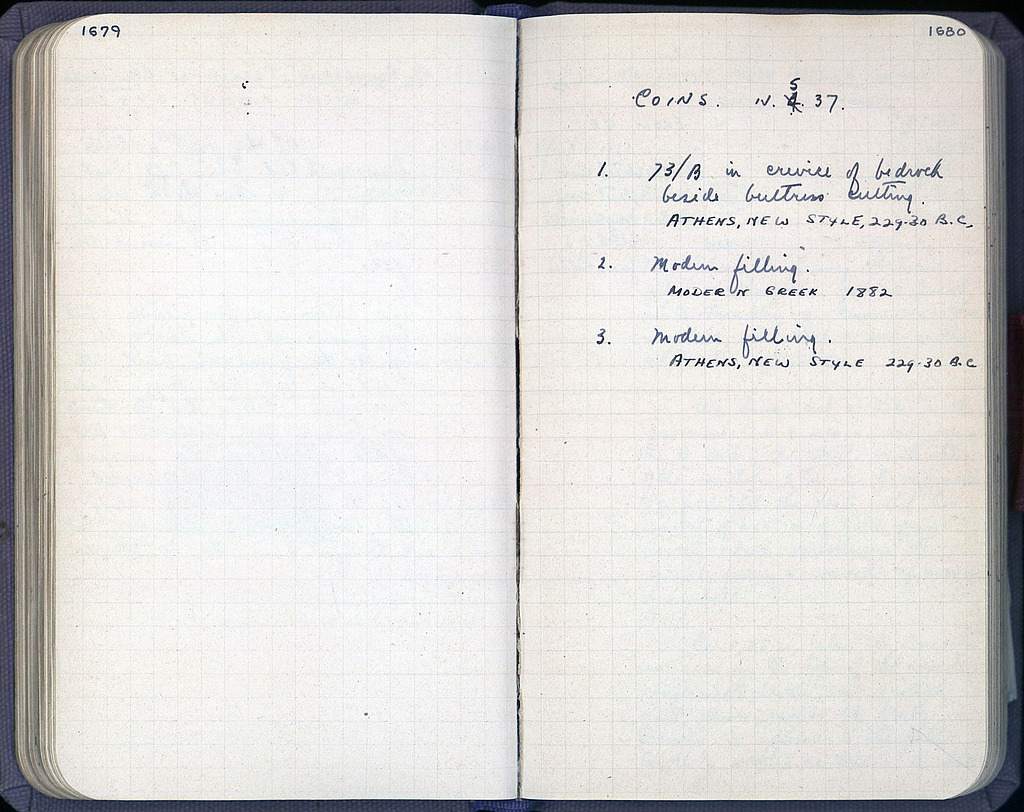 1679
1680
COINS. IV. 5. 37.
1. 73/B in crevice of bedrock
beside buttress cutting.
ATHENS, NEW STYLE, 229-30 B.C.
2. Modern filling.
MODERN GREEK 1882
3. Modern filling.
ATHENS, NEW STYLE 229-30 B.C